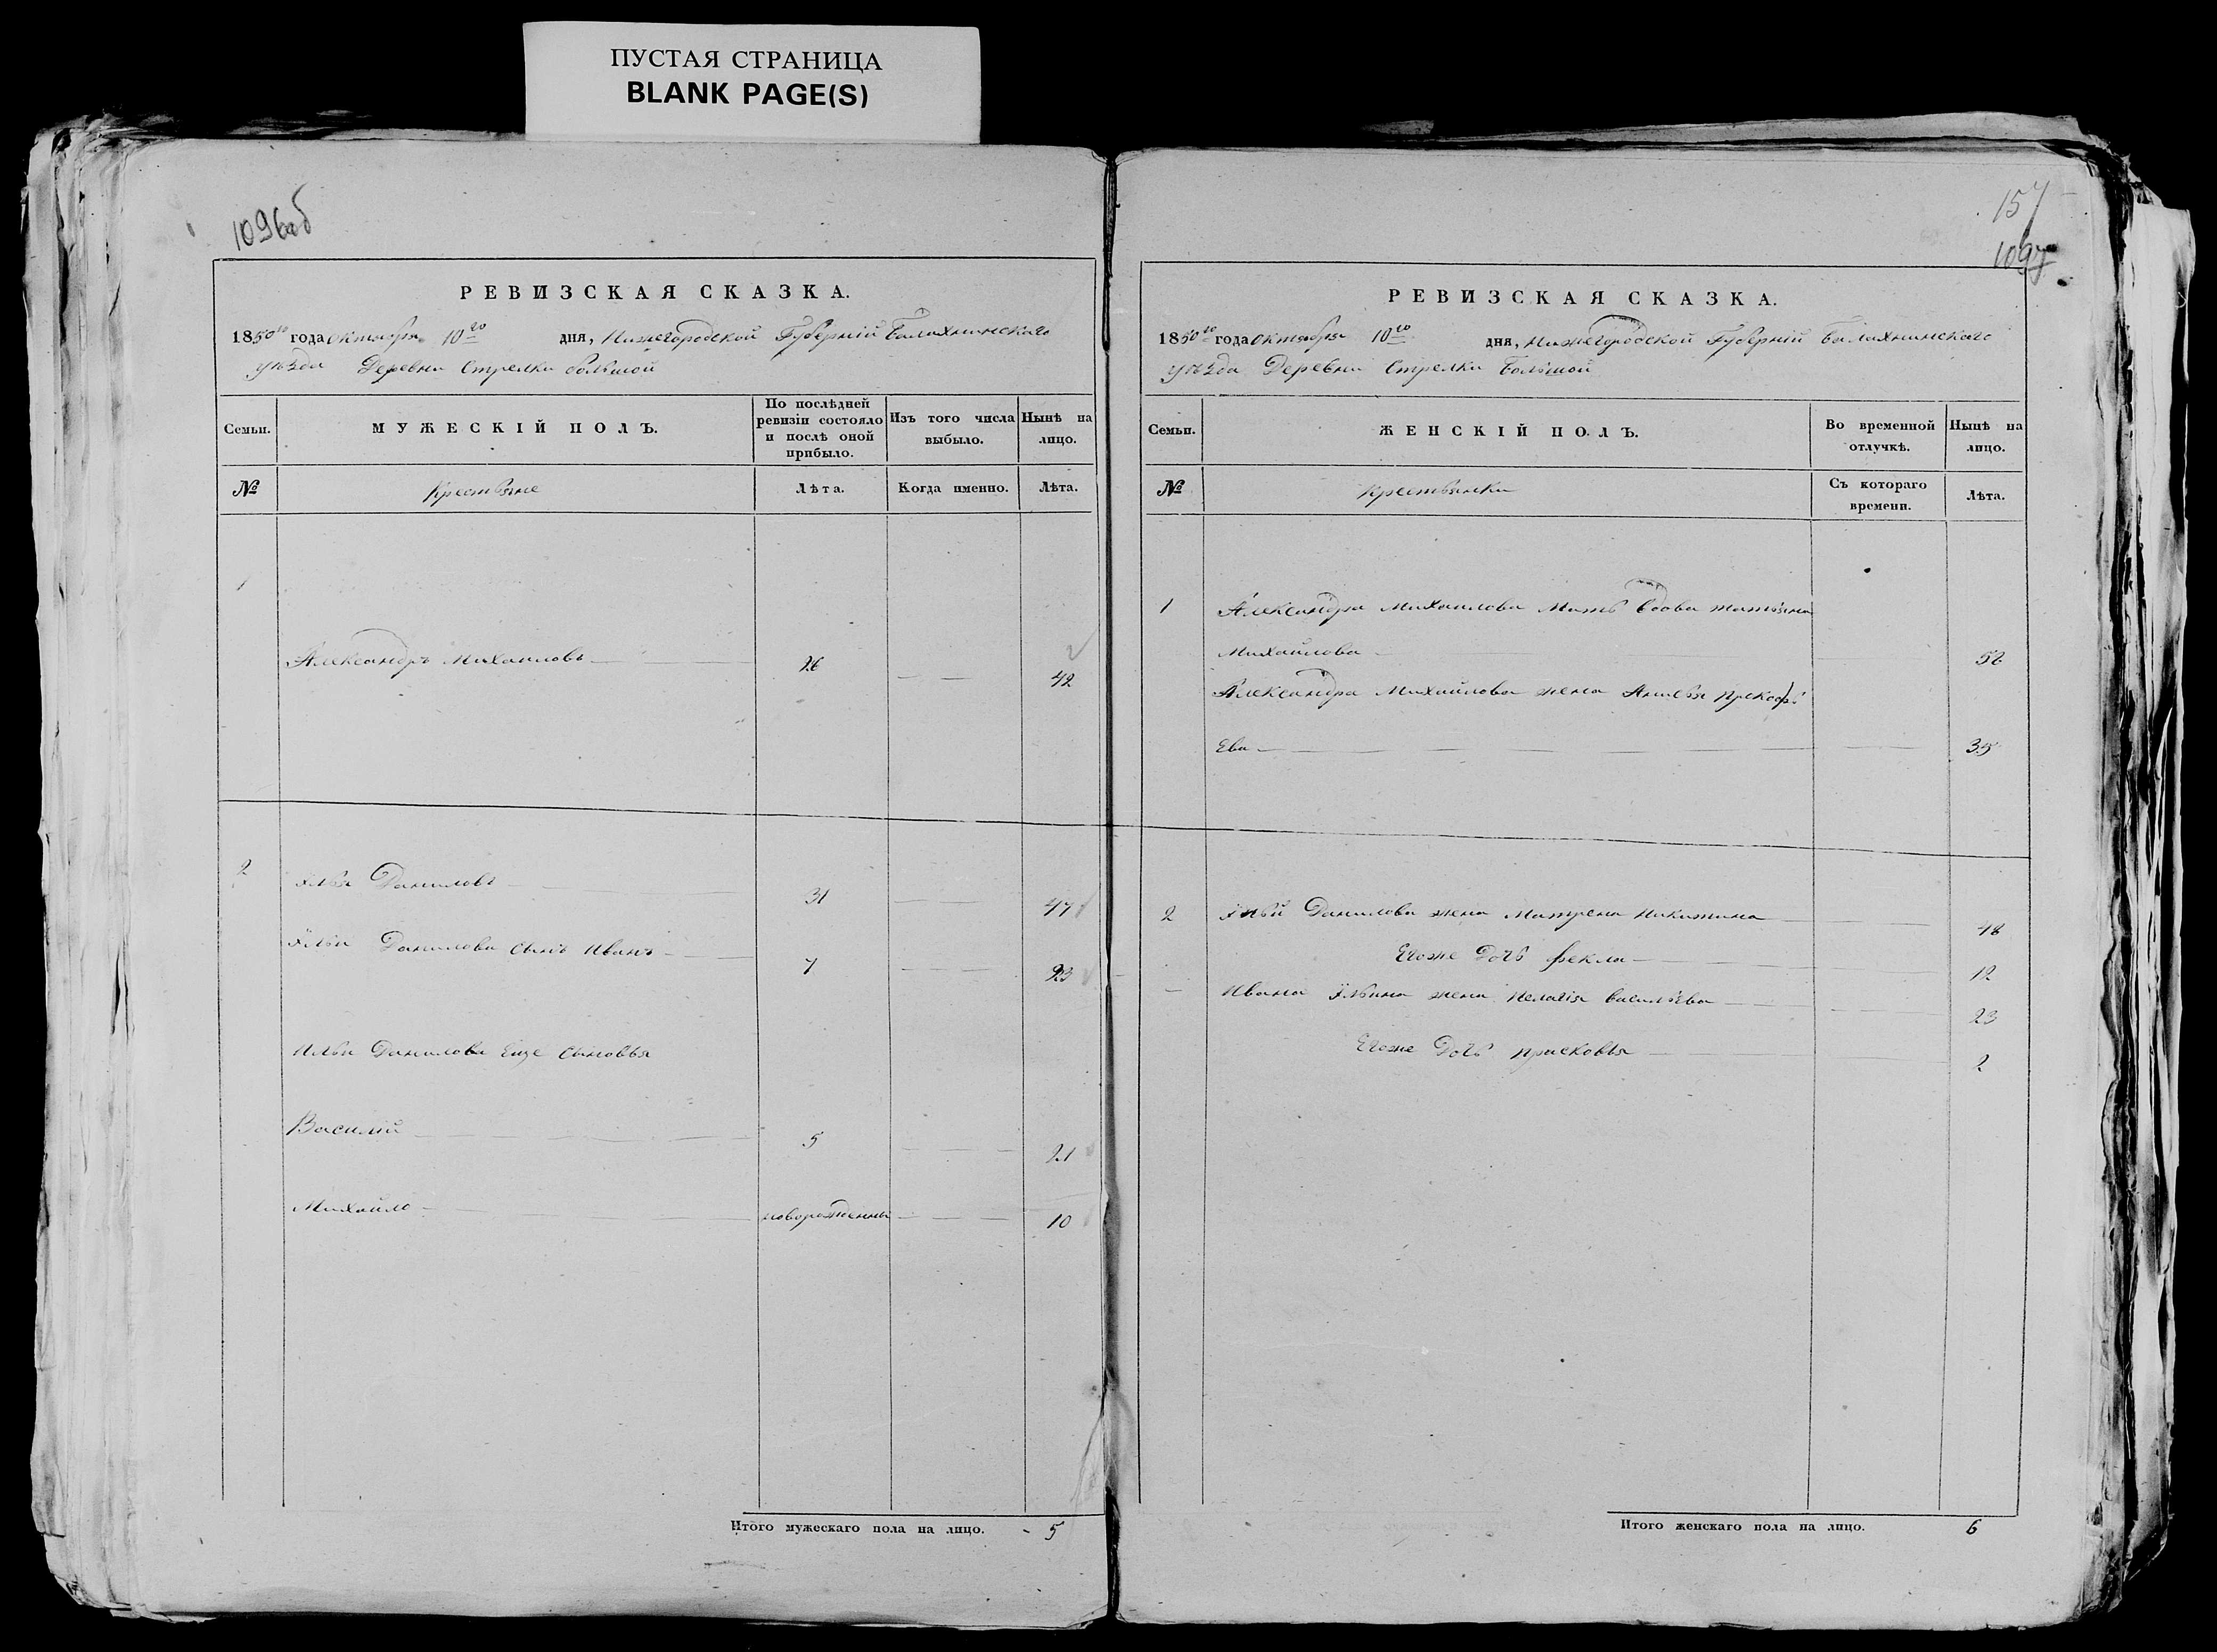 ПУСТАЯ СТРАНИЦА
BLANK PAGE(S)
1096об
РЕВИЗСКАЯ СКАЗКА.
1850го года октября 10го дня, Нижегородской Губернiй Балахнинскаго
уѣзда Деревни Стрелки большой
Семьи. МУЖЕСКIЙ ПОЛЪ. По послѣдней ревизiи состояло и послѣ оной прибыло. Изъ того числа выбыло. Нынѣ на лицо.
№ Крестьяне Лѣта. Когда именно. Лѣта.
1
Александръ Михаиловъ 26 42
2 Илья Даниловъ 31 47
Ильи Данилова сынъ Иванъ 7 23
Ильи Данилова Еще сыновья
Василiй 5 21
Михайло новорожденны 10
Итого мужескаго пола на лицо. 5
157
1097
РЕВИЗСКАЯ СКАЗКА.
1850го года октября 10го дня, Нижегородской Губернiй балахнинскаго
уѣзда Деревни Стрелки Большой
Семьи. ЖЕНСКIЙ ПОЛЪ. Во временной отлучкѣ. Нынѣ на лицо.
№ Крестьянки Съ котораго времени. Лѣта.
1 Александра Михаилова Мать вдова татьяна
Михайлова
Александра Михайлова жена
Ева 35
2 Данилова жена Матрена Никитина 48
Егоже Дочь фекла 12
Ивана Ильина жена Пелагiя васильева 23
Егоже Дочь прасковья 2
Итого женскаго пола на лицо. 6